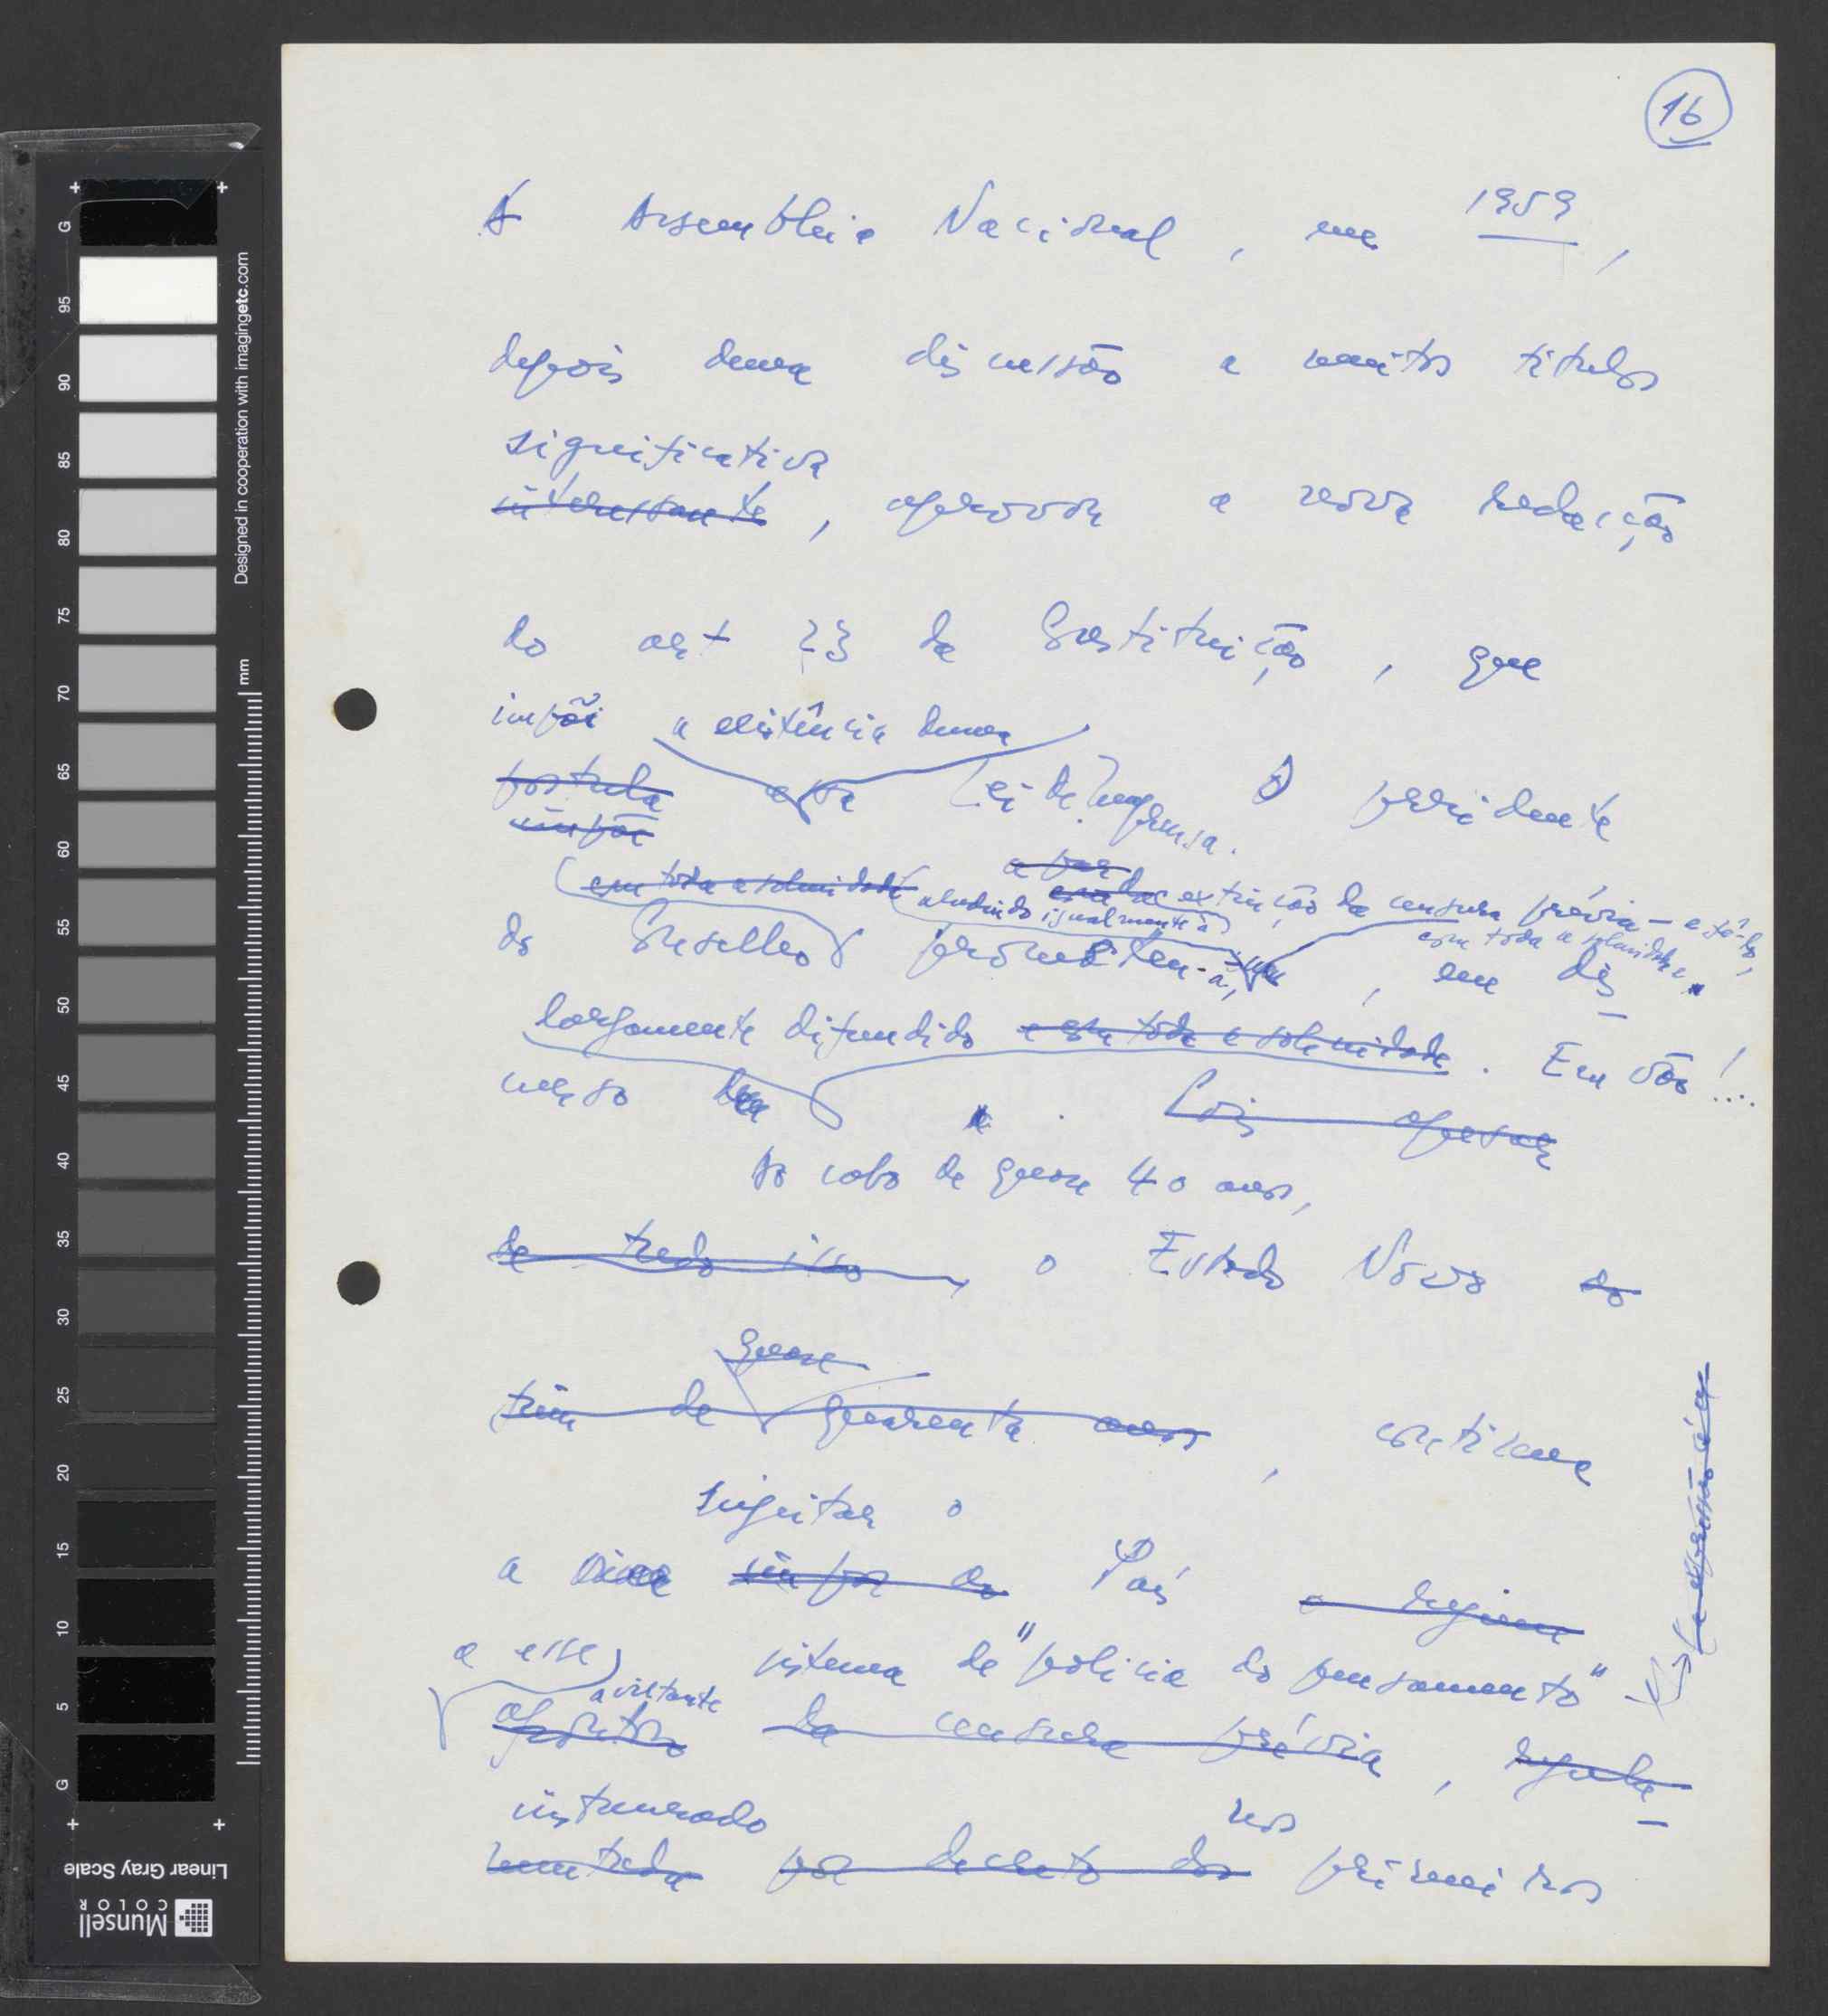 16
A Assembleia Nacional, em 1959,
depois duma discussão a muitos títulos
significativa
interessante, aprovou a nova redacção
do art 23 da Constituição, que
impõe a existência duma
postula
impõe
essa Lei de Imprensa. O presidente
a par
(com toda a solenidade aludindo extinção da censura prévia — e fê-lo,
igualmente à com toda a solenidade,
do Conselho prometeu-a, em dis-
largamente difundido e com toda a solenidade. Em vão!...
curso. Pois apesar
Ao cabo de quase 40 anos,
de tudo isso, o Estado Novo ao
quase
fim de quarenta anos, continua
sujeitar o
a impor ao País o regime
a esse sistema de "polícia do pensamento"
aviltante
da censura prévia, regula-
instaurado nos
mentada por decreto dos primeiros